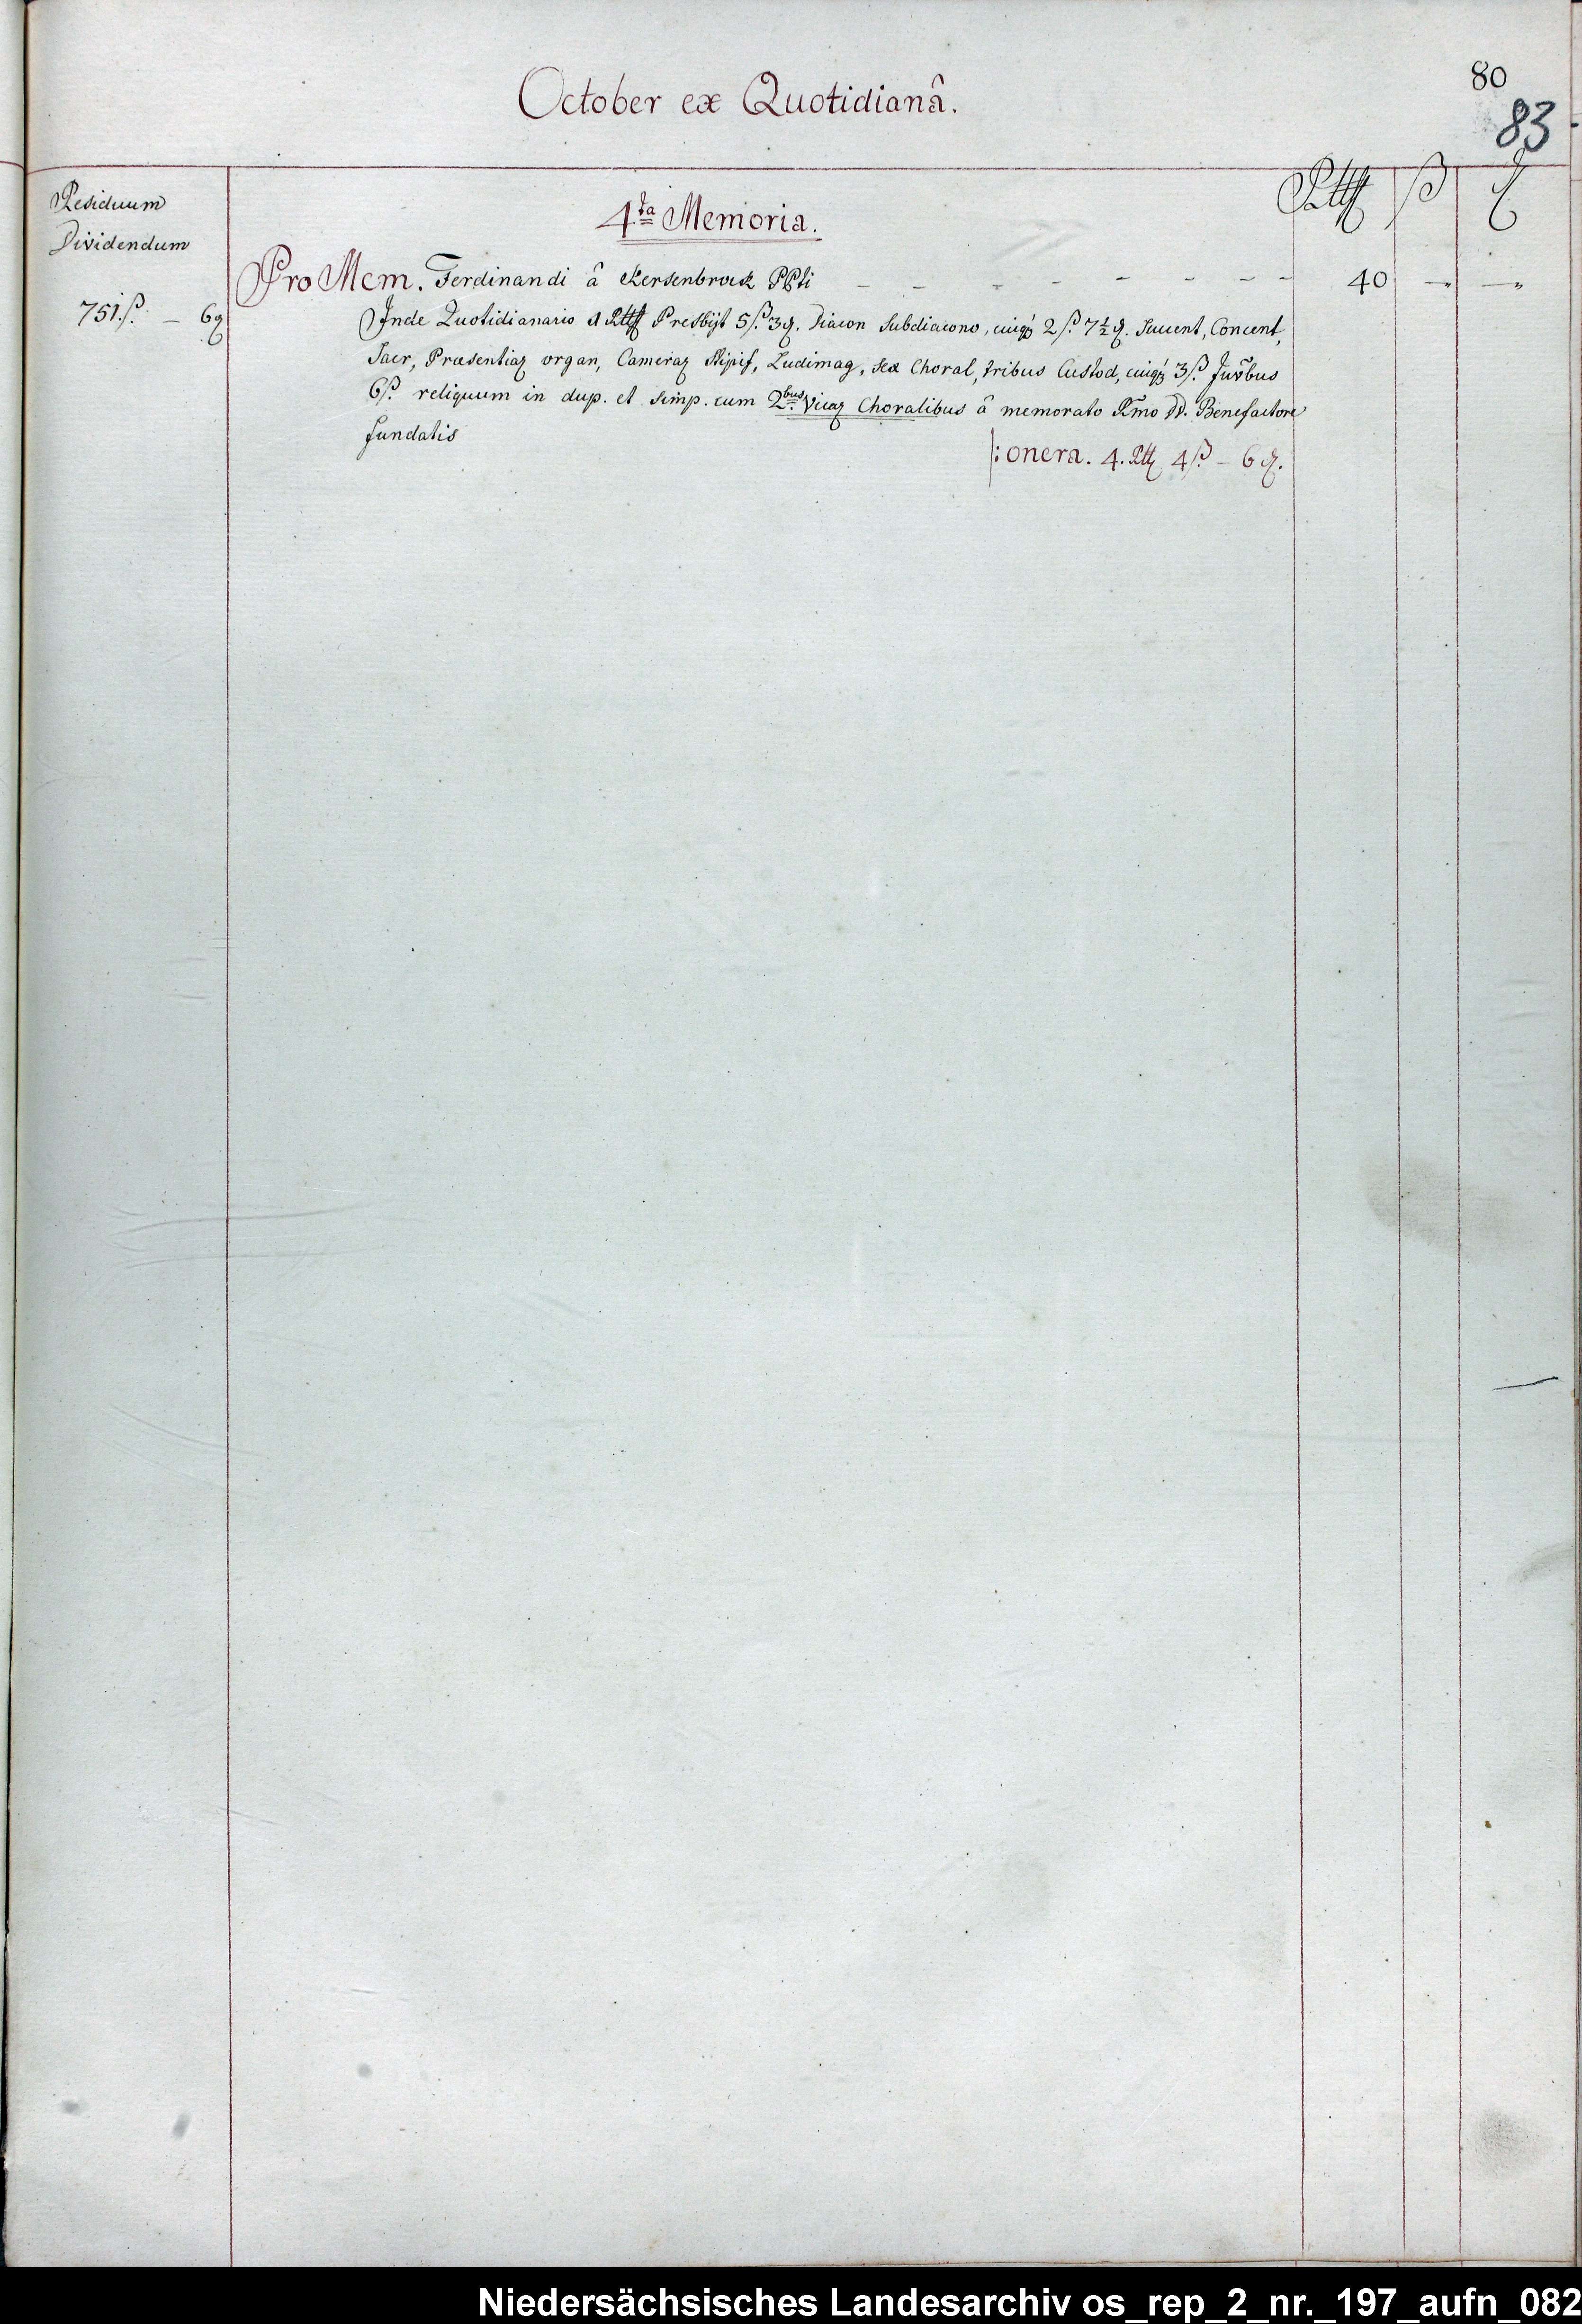 October ex Quotidianâ.
80
83
Residuum
Dividendum
4ta Memoria.
Rtlr ß ₰
Pro Mem. Ferdinandi â Kersenbrock PPti - - - - - - - - 40 - -
751.ß. - 6₰
Inde Quotidianario 1 Rtlr Presbijt 5ß. 3₰. Diacon Subdiacono, cuiqz 2ß. 7½₰. Succent, Concent,
Sacr, Præsentiaz organ, Cameraz Stipif, Ludimag, sex Choral, tribus Custod, cuiqz 3ß. Jurbus
6ß. reliquum in dup. et simp. cum 2bus Vicaz Choralibus â memorato Rmo DD. Benefactore
fundatis
|: onera. 4. Rtlr 4ß. - 6₰.
Niedersächsisches Landesarchiv os_rep_2_nr._197_aufn_082